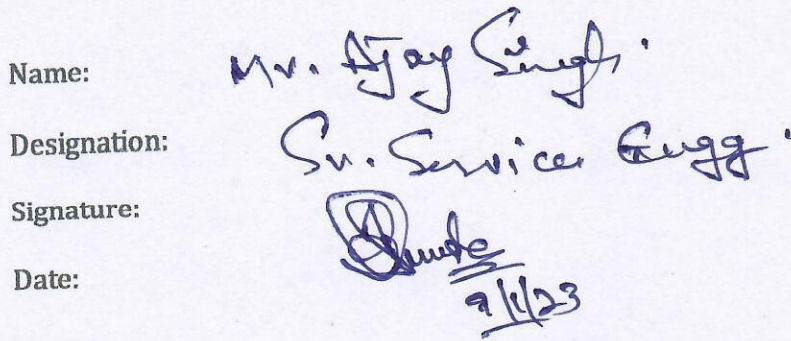 Name: Mr. Ajay Singh.
Designation: Sr. Service Engg.
Signature:
Date: 9/1/23